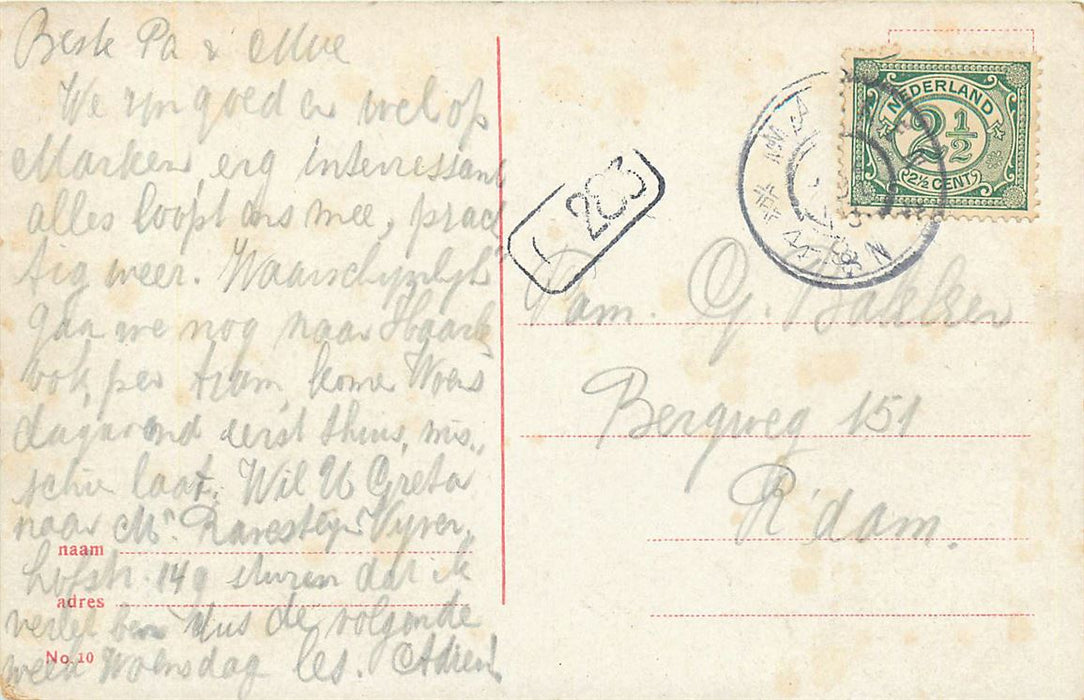 Beste Pa & Moe
We zyn goed en wel op
Marken erg interressant
alles loopt ons mee, prach
tig weer. Waarschynlyk
gaan we nog naar Haarl
ook, per tram, kome Woens
dagavond eerst thuis, mis-
schie laat. Wil U Greta
naar Mr. Ravesteyn Vyver-
hofstr. 149 sturen dat ik
verlet ben dus de volgende
week Woensdag les. Adrien
naam
adres
No. 10
NEDERLAND
2 1/2
2½ CENT
203
Fam. G. Bakker
Bergweg 151
R'dam.